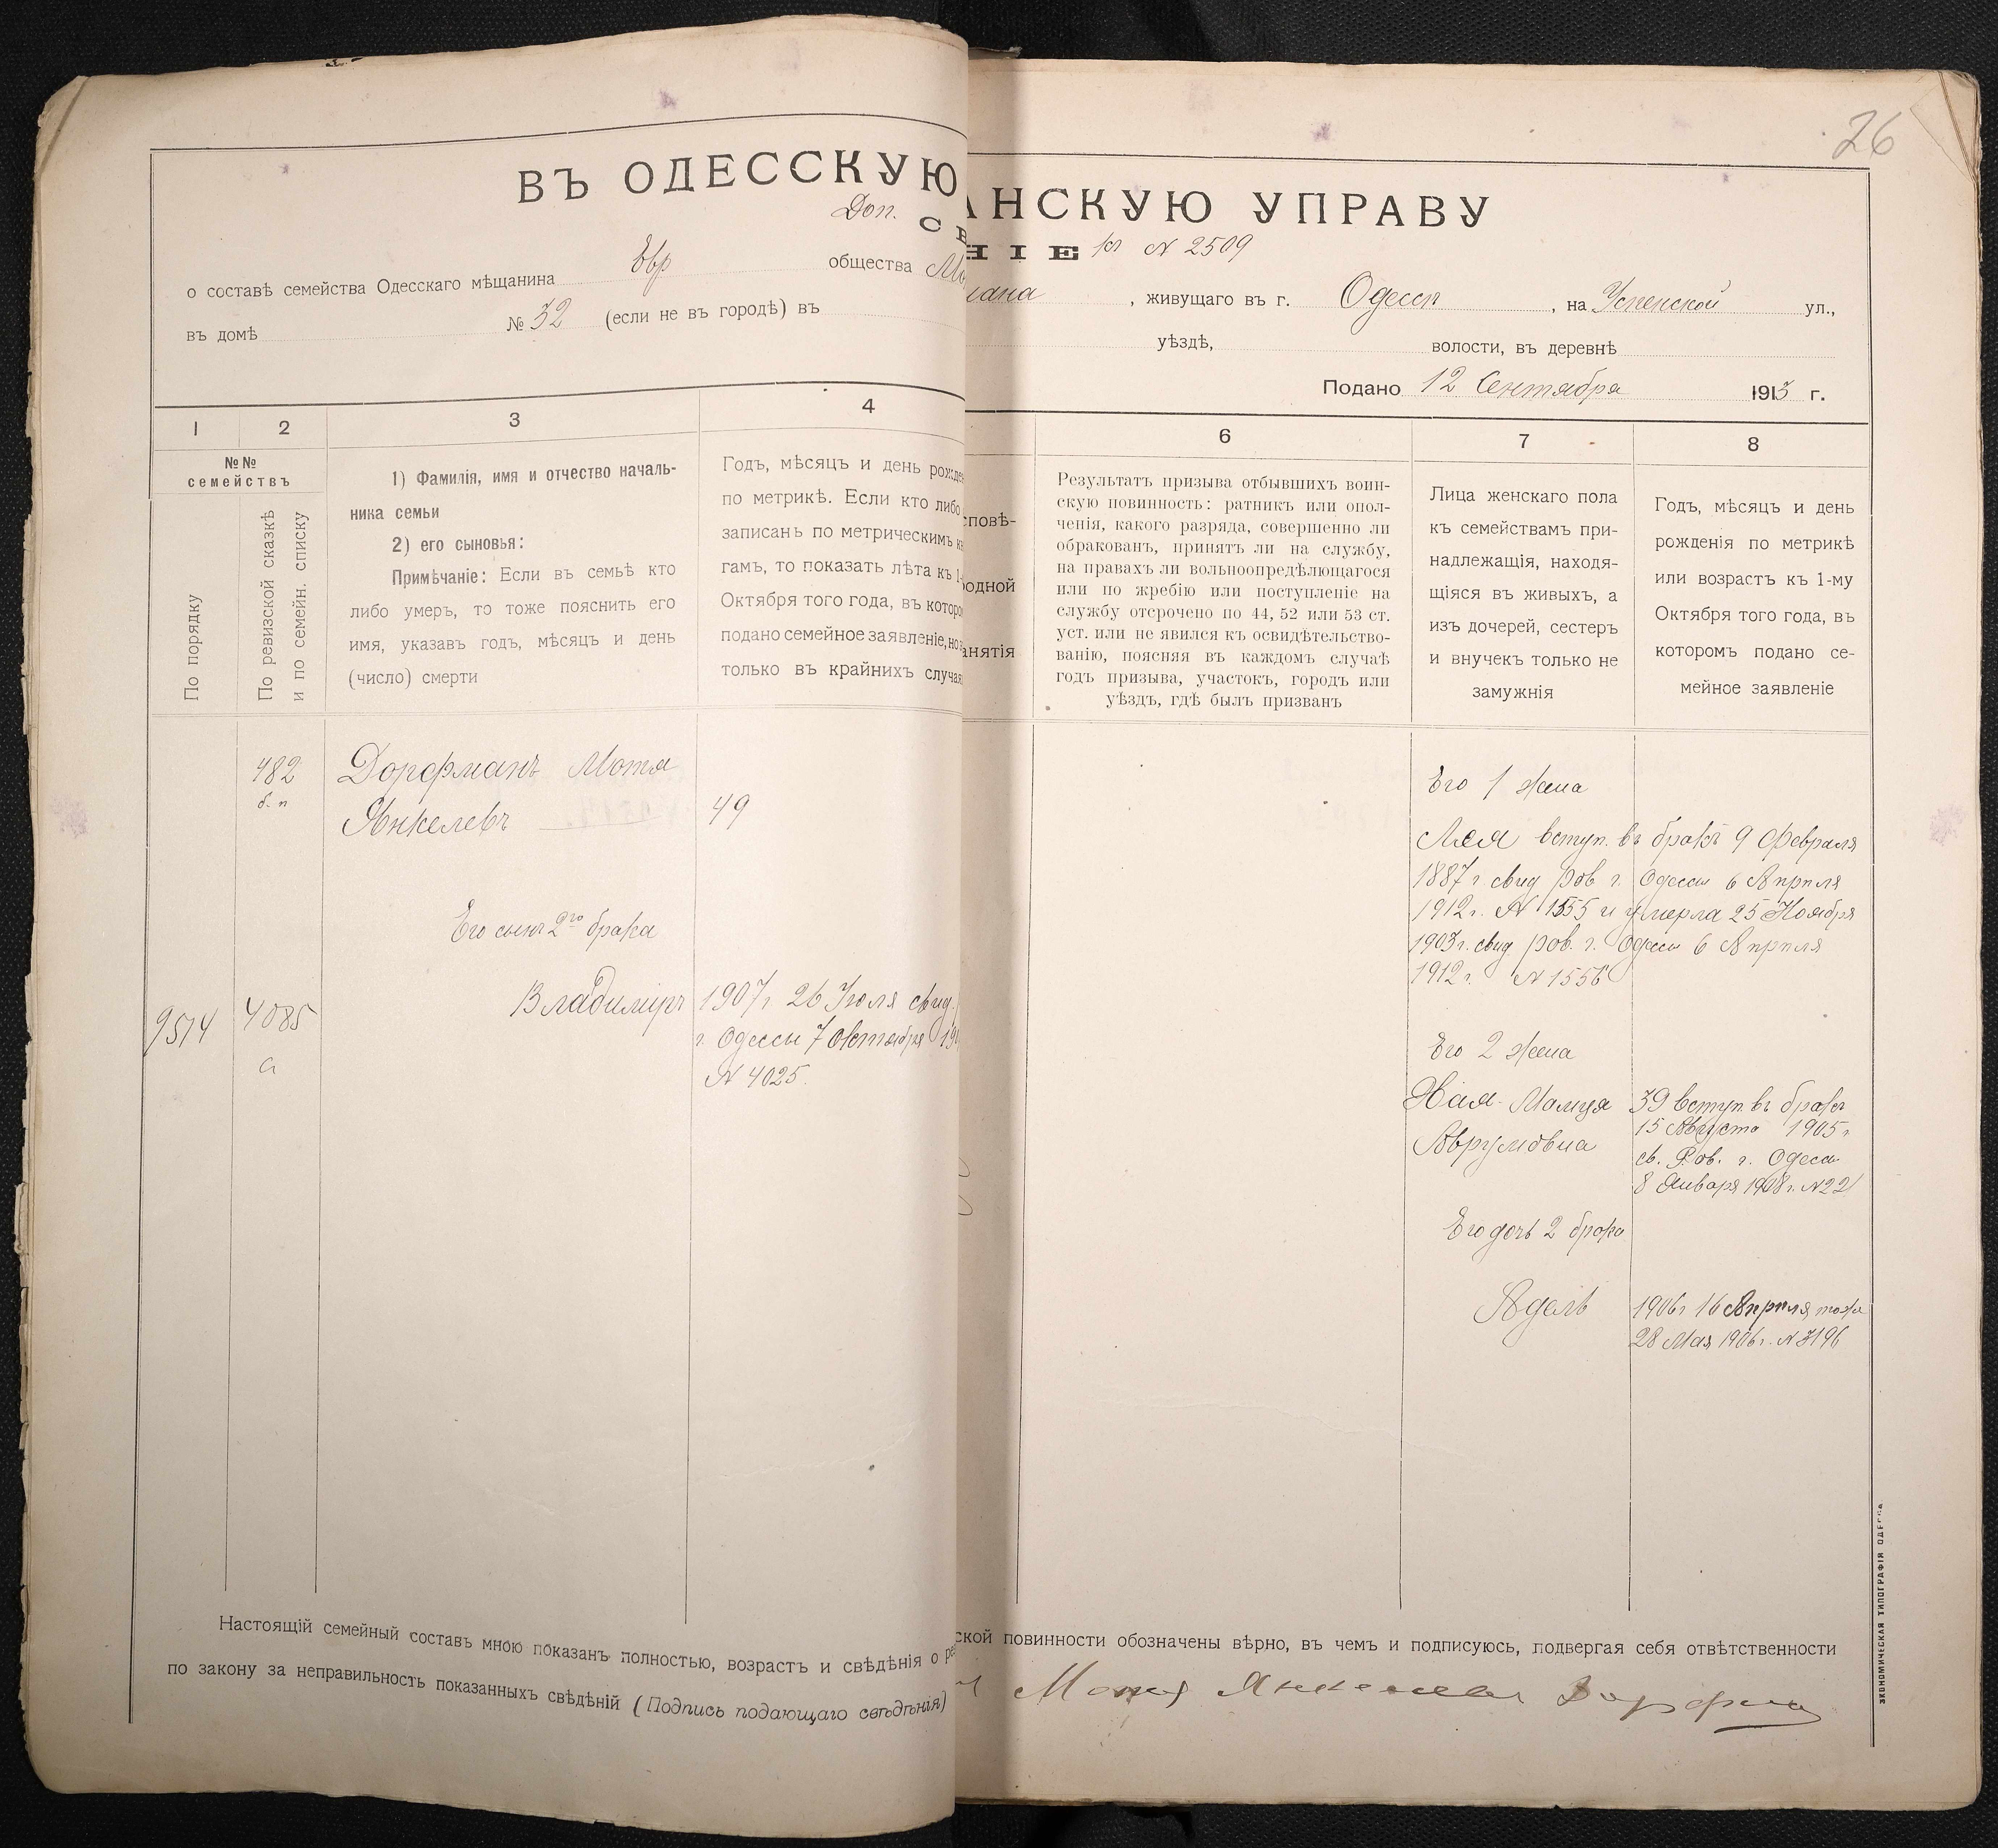 26
ВЪ ОДЕССКУЮ
АНСКУЮ УПРАВУ
Доп.
НІЕ
N 2509
о составѣ семейства Одесскаго мѣщанина Евр общества
, живущаго въ г. Одессѣ, на Успенской ул.,
въ домѣ № 32 (если не въ городѣ) въ
уѣздѣ, волости, въ деревнѣ
Подано 12 Сентября 1913 г.
1
2
3
4
6
7
8
№№
семействъ
По порядку
По ревизской сказкѣ
и по семейн. списку
1) Фамилія, имя и отчество началь-
ника семьи
2) его сыновья:
Примѣчаніе: Если въ семьѣ кто
либо умеръ, то тоже пояснить его
имя, указавъ годъ, мѣсяцъ и день
(число) смерти
Годъ, мѣсяцъ и день рожде
по метрикѣ. Если кто либо
записанъ по метрическимъ
гамъ, то показать лѣта къ 1-
Октября того года, въ которо
подано семейное заявленіе, но
только въ крайнихъ случая
сповѣ-
одной
анятія
Результатъ призыва отбывшихъ воин-
скую повинность: ратникъ или опол-
ченія, какого разряда, совершенно ли
обракованъ, принятъ ли на службу,
на правахъ ли вольноопредѣляющагося
или по жребію или поступленіе на
службу отсрочено по 44, 52 или 53 ст.
уст. или не явился къ освидѣтельство-
ванію, поясняя въ каждомъ случаѣ
годъ призыва, участокъ, городъ или
уѣздъ, гдѣ былъ призванъ
Лица женскаго пола
къ семействамъ при-
надлежащія, находя-
щіяся въ живыхъ, а
изъ дочерей, сестеръ
и внучекъ только не
замужнія
Годъ, мѣсяцъ и день
рожденія по метрикѣ
или возрастъ къ 1-му
Октября того года, въ
которомъ подано се-
мейное заявленіе
482
б. п
Дорфманъ Мотя
Янкелевъ
49
Его сынъ 2го брака
9514
4085
а
Владиміръ
1907 г 26 Іюля свид.
г. Одессы 7 октября
N 4025.
Его 1 жена
Лея вступ. въ бракъ 9 Февраля
1887 г. свид рав г. Одессы 6 Апрѣля
1912 г. N 1555 и умерла 25 Ноября
1903 г. свид рав. г. Одессы 6 Апрѣля
1912 г. N 1556
Его 2 жена
Хая-Малця
Аврумовна
39 вступ. въ бракъ
15 Августа 1905 г
св. Рав. г. Одессы
8 Января 1908 г. N 22
Его дочь 2 брака
Адель
1906 г 16 Апрѣля тоже
28 Мая 1906 г. N 3196
Настоящій семейный составъ мною показанъ полностью, возрастъ и свѣдѣнія о
ской повинности обозначены вѣрно, въ чемъ и подписуюсь, подвергая себя отвѣтственности
по закону за неправильность показанныхъ свѣдѣній (Подпись подающаго свѣдѣнія)
Мотя Янкелевъ Дорфман
ЭКОНОМИЧЕСКАЯ ТИПОГРАФІЯ ОДЕССА